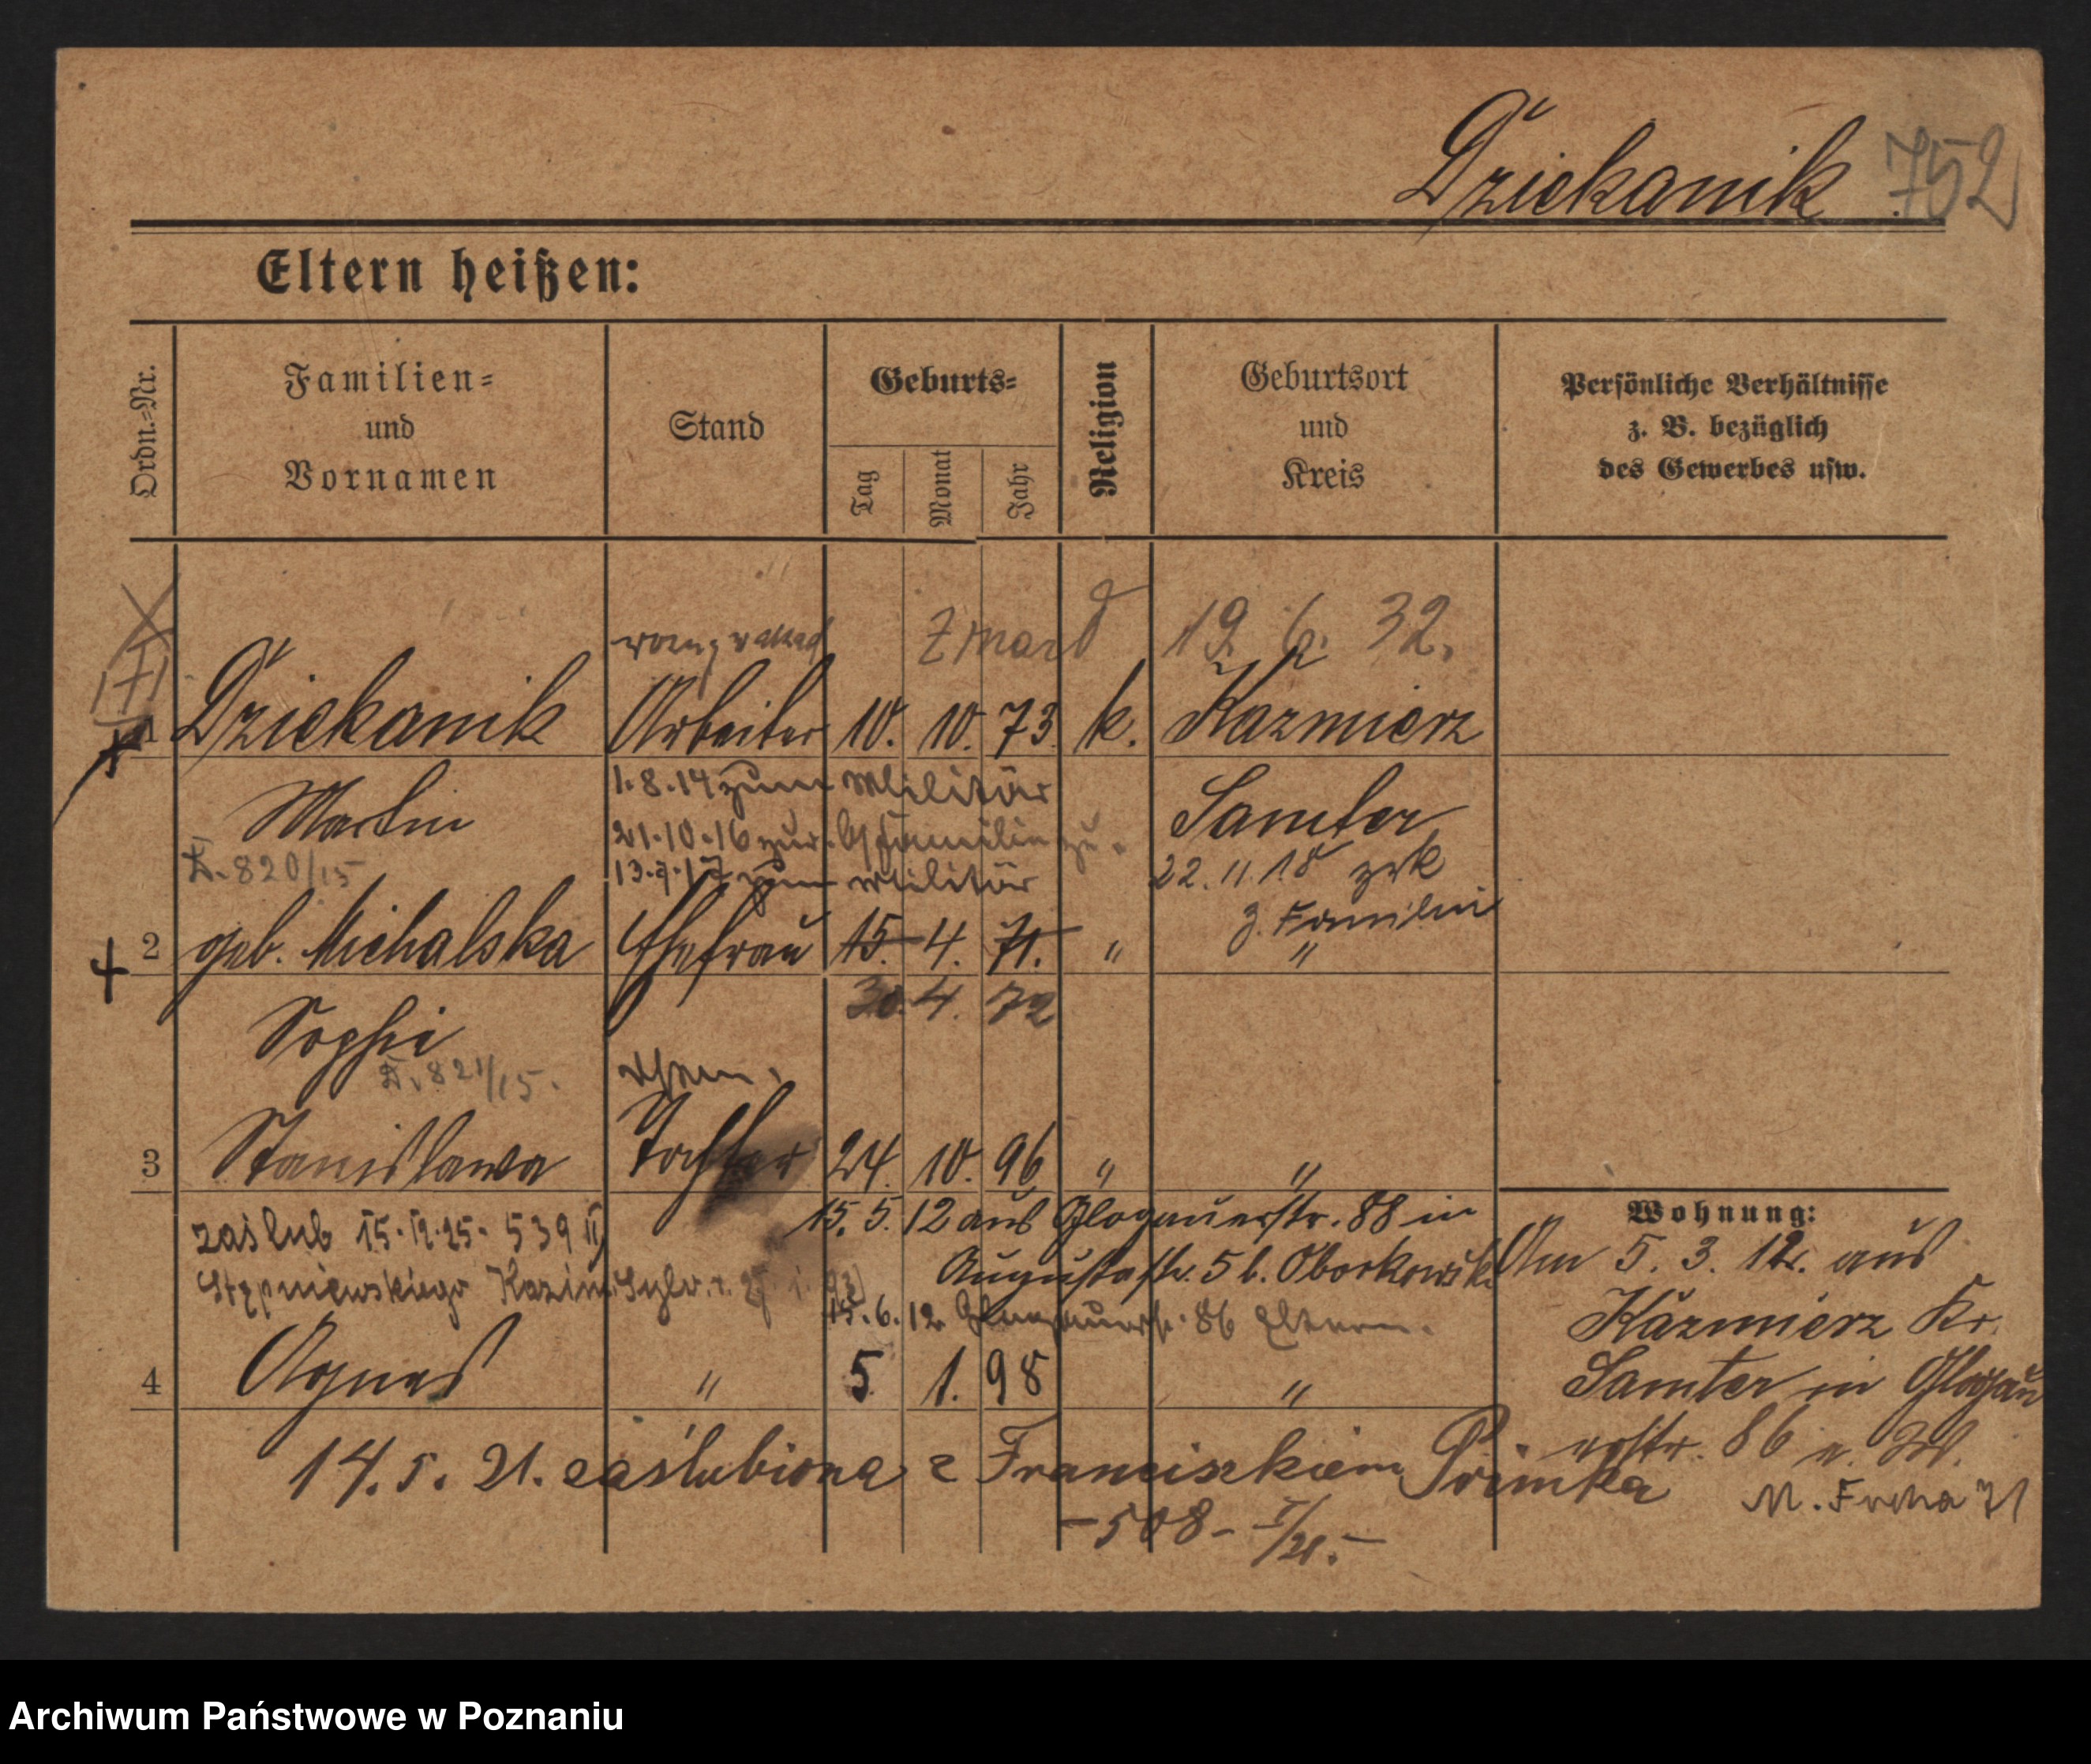 Dziekanik 752
Eltern heißen:
Ordn.-Nr.
Familien-
und
Vornamen
Stand
Geburts-
Tag
Monat
Jahr
Religion
Geburtsort
und
Kreis
Persönliche Verhältnisse
z. B. bezüglich
des Gewerbes usw.
Zmarł 19. 6. 32.
1 Dziekanik Arbeiter 10. 10. 73. k. Kazmierz
Martin
1.8.14 zum Militär
Samter
21.10.16 zur Familie
K. 820/15
13.7.17 zum Militär
22.11.18 zrk
z. Familie
2 geb. Michalska Ehefrau 15. 4. 71. " "
30. 4. 72
Sophie
K. 821/15.
3 Stanislawa Tochter 24. 10. 96 " "
15. 5. 12 aus Glogauerstr. 88 in
Augustastr. 5 b. Oborkowski
zaślub 15. 539 II
Stępniewskiego Kazim. Sylw.
15. 6. 12 Glogauerstr. 86 Eltern.
4 Agnes " 5 1. 98 "
14. 5. 21. zaślubiona z Franciszkiem
- 508 - I/21. -
Wohnung:
Am 5. 3. 12. aus
Kazmierz Kr.
Samter in Glogau
erstr. 86
M. 71
Archiwum Państwowe w Poznaniu